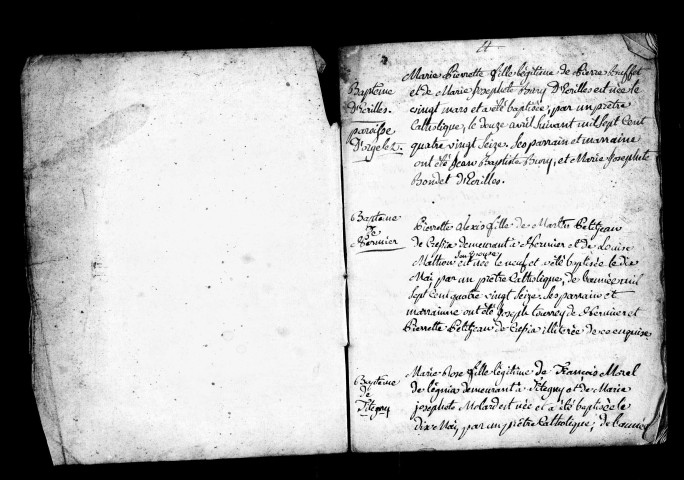 4
Baptême
D'Écrilles.
paroisse
D'orgelet.
Marie Pierrette fille légitime de Pierre Buffet
et de Marie Josephte Bury D'Écrilles est née le
vingt mars et a été baptisée, par un prêtre
Catholique, le douze avril suivant mil sept cent
quatre vingt seize. Ses parrain et marraine
ont été Jean Baptiste Bury, et Marie Josephte
Bondet D'Écrilles.
Baptême
de
Pierrette Alexis fille de Martin Petitjean
de Cressia demeurant à et de Louise
Mathieu son épouse est née le neuf et a été baptisée le dix
Mai par un prêtre Catholique, de l'année mil
sept cent quatre vingt seize. Ses parrain et
marrainne ont été Joseph de et
Pierrette Petitjean de Cressia illiterée de ce enquise
Baptême
de
Marie Rose fille légitime de François Morel
de Légnia demeurant à et de Marie
josephte Molard est née et a été baptisée le
dix Mai, par un prêtre Catholique; de l'année